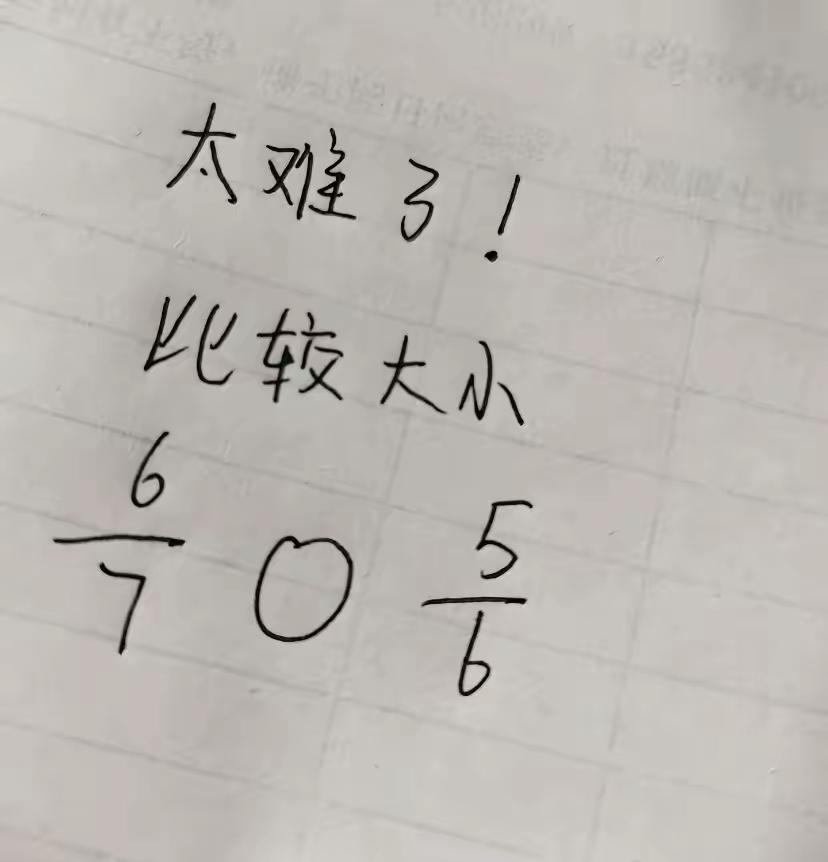 太难了！
比较大小
6/7 ○ 5/6